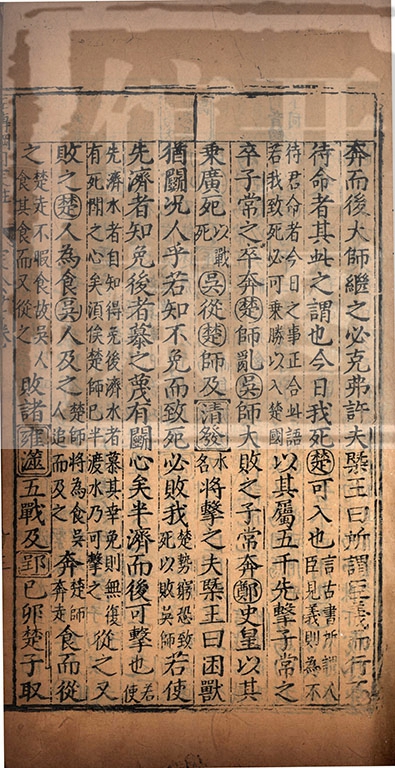 奔而後大師繼之必克弗許夫槩王曰所謂臣義而行不
待命者其此之謂也今日我死楚可入也
言古書所謂人
臣見義則為不
待君命者今日之事正合此語
若我致死必可乘勝以入楚國
以其屬五千先擊子常之
卒子常之卒奔楚師亂吳師大敗之子常奔鄭史皇以其
乘廣死
以戰
死
吳從楚師及清發
水
名
將擊之夫槩王曰困獸
猶鬬况人乎若知不免而致死必敗我
楚勢窮恐致
死以敗吳師
若使
先濟者知免後者慕之蔑有鬬心矣半濟而後可擊也
若
使
先濟水者自知得免後濟水者慕其幸免則無復
有死鬬之心矣湏俟楚師已半渡水乃可擊之
從之又
敗之楚人為食吳人及之
楚師將為食吳
人追而及之
奔
楚師
奔走
食而從
之
楚走不暇食故吳人
食其食而又從之
敗諸雍澨五戰及郢己卯楚子取